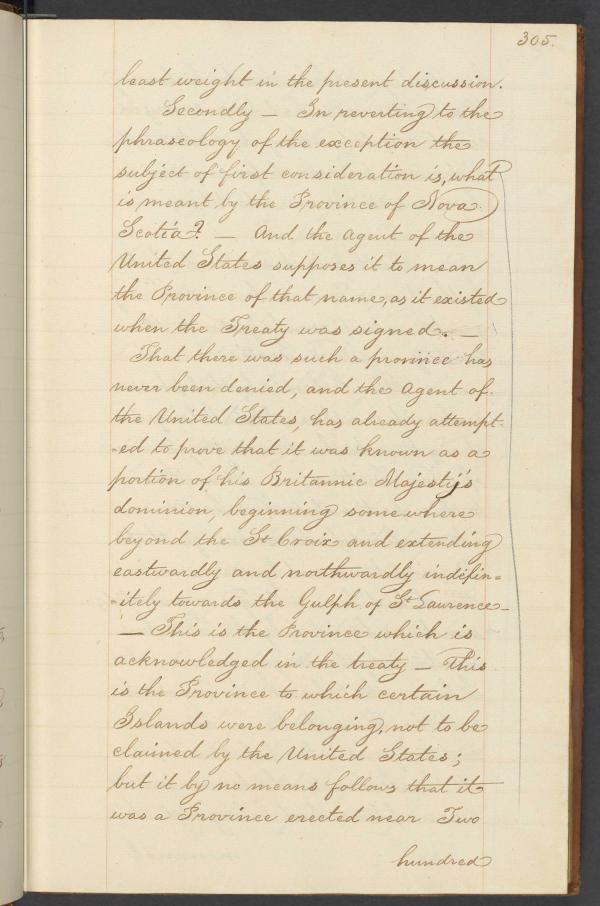 305.
least weight in the present discussion.
Secondly — In reverting to the
phraseology of the exception the
subject of first consideration is, what
is meant by the Province of Nova
Scotia? — And the Agent of the
United States supposes it to mean
the Province of that name, as it existed
when the Treaty was signed. —
That there was such a province has
never been denied, and the Agent of
the United States, has already attempt-
-ed to prove that it was known as a
portion of his Britannic Majesty's
dominion, beginning somewhere
beyond the St Croix and extending
eastwardly and northwardly indefin=
-itely towards the Gulph of St Laurence —
— This is the Province which is
acknowledged in the treaty — This
is the Province to which certain
Islands were belonging, not to be
claimed by the United States;
but it by no means follows that it
was a Province erected near Two
hundred